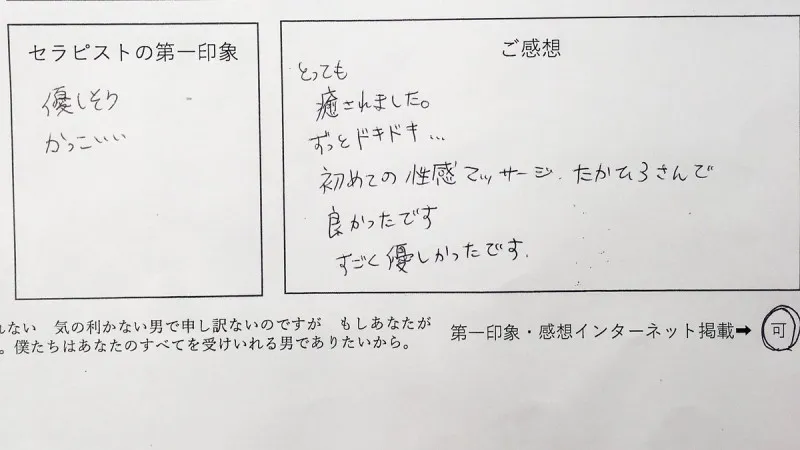 セラピストの第一印象
優しそう
かっこいい
ご感想
とっても
癒されました。
ずっとドキドキ…
初めての性感マッサージ.たかひろさんで
良かったです
すごく優しかったです.
れない 気の利かない男で申し訳ないのですが もしあなたが
。僕たちはあなたのすべてを受けいれる男でありたいから。
第一印象・感想インターネット掲載➡ 可